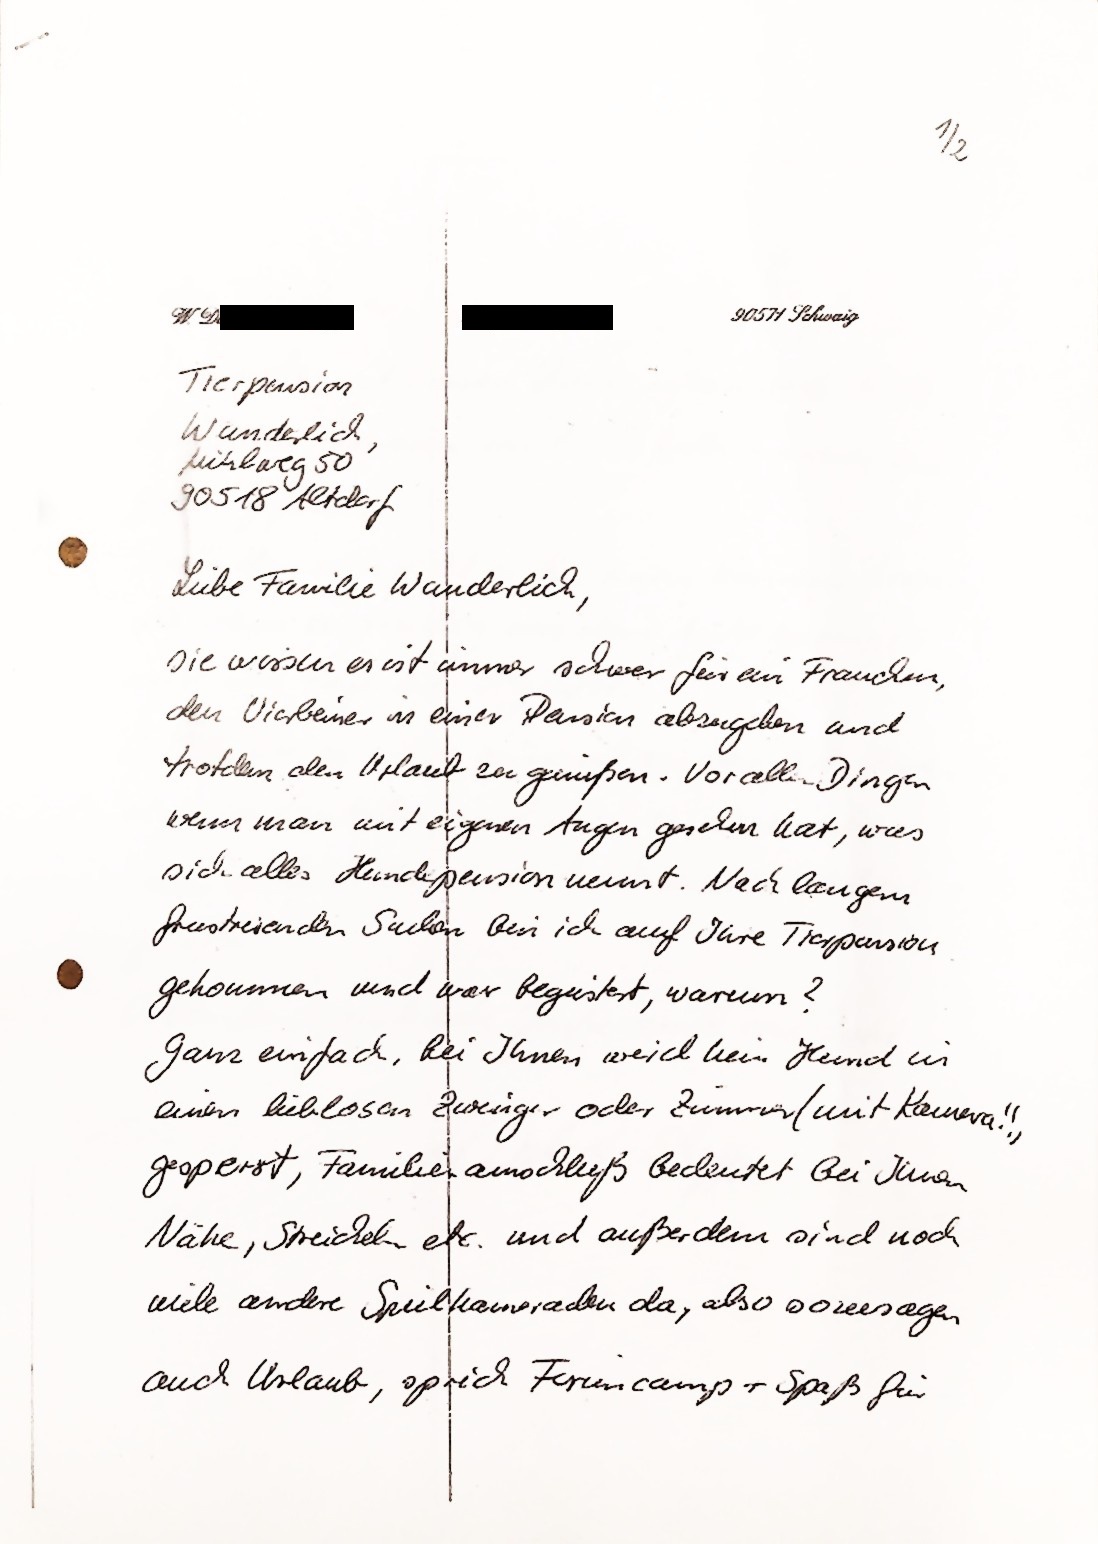 1/2
W. D 90571 Schwaig
Tierpension
Wunderlich,
Mühlweg 50
90518 Altdorf
Liebe Familie Wunderlich,
sie wissen es ist immer schwer für ein Frauchen,
den Vierbeiner in einer Pension abzugeben und
trotzdem den Urlaub zu genießen. Vor allen Dingen
wenn man mit eigenen Augen gesehen hat, was
sich alles Hundepension nennt. Nach langem
frustrierenden Suchen bin ich auf Ihre Tierpension
gekommen und war begeistert, warum?
Ganz einfach, bei Ihnen wird kein Hund in
einen lieblosen Zwinger oder Zimmer (mit Kamera!!)
gesperrt, Familienanschluß bedeutet bei Ihnen
Nähe, Streicheln etc. und außerdem sind noch
viele andere Spielkameraden da, also sozusagen
auch Urlaub, sprich Feriencamp + Spaß für